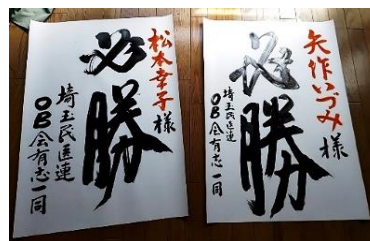 松本幸子様
必勝
埼玉民医連
OB会有志一同
矢作いづみ様
必勝
埼玉民医連
OB会有志一同